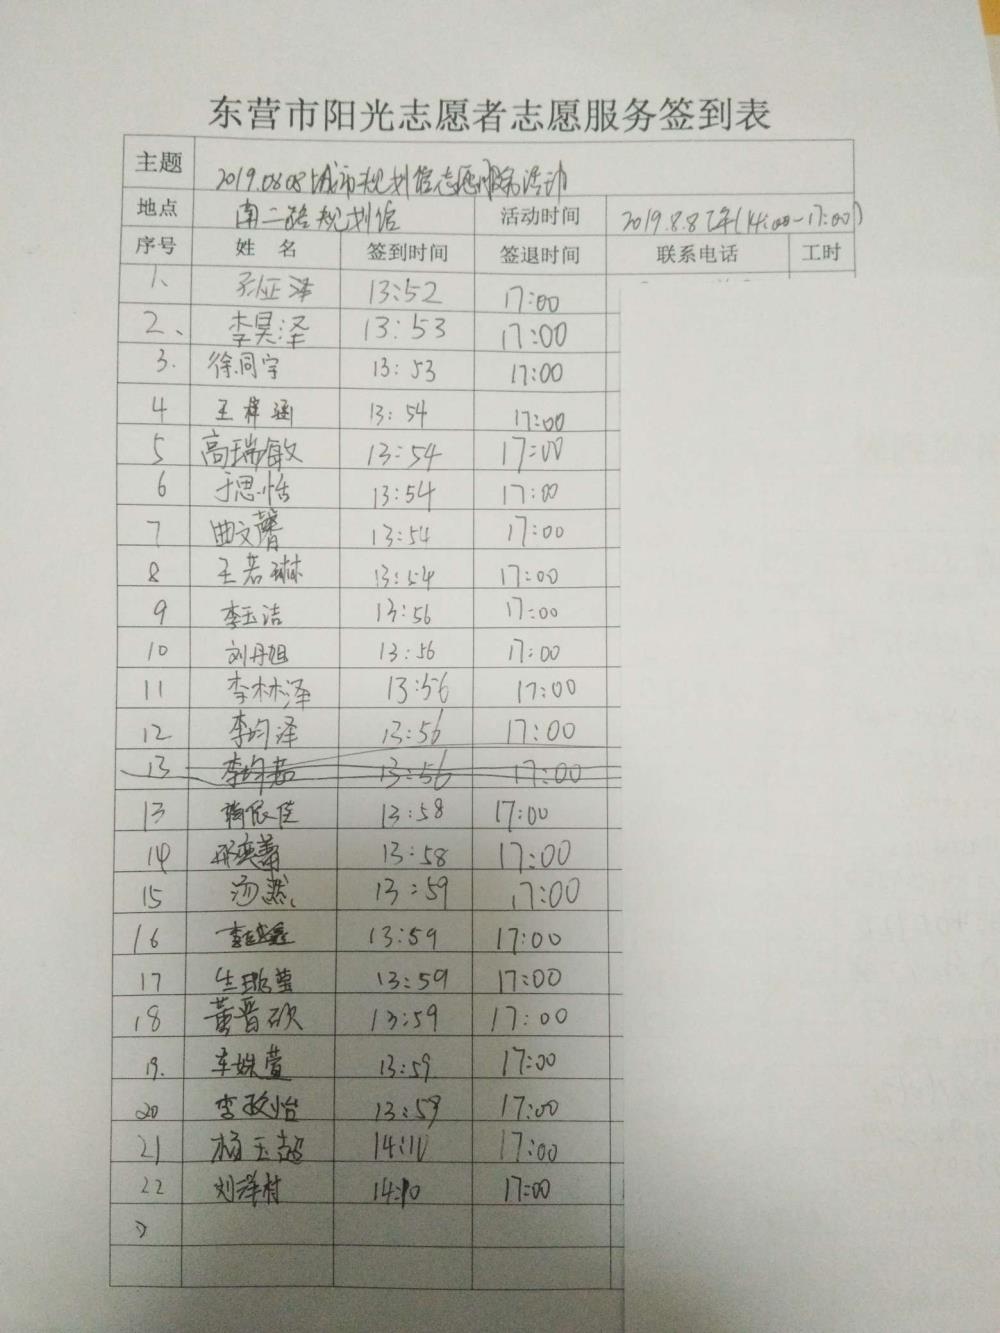 东营市阳光志愿者志愿服务签到表
主题 2019.08.08城市规划馆志愿服务活动
地点 南二路规划馆 活动时间 2019.8.8下午(14:00-17:00)
序号 姓名 签到时间 签退时间 联系电话 工时
1、 13:52 17:00
2、 李昊泽 13:53 17:00
3. 徐同宇 13:53 17:00
4 王梓涵 13:54 17:00
5 高瑞敏 13:54 17:00
6 于思恬 13:54 17:00
7 曲文馨 13:54 17:00
8 王若琳 13:54 17:00
9 李玉洁 13:56 17:00
10 刘丹妲 13:56 17:00
11 李林泽 13:56 17:00
12 李均泽 13:56 17:00
13 13:56 17:00
13 韩依佳 13:58 17:00
14 13:58 17:00
15 汤然 13:59 17:00
16 13:59 17:00
17 13:59 17:00
18 董晋硕 13:59 17:00
19. 车姝萱 13:59 17:00
20 李政怡 13:59 17:00
21 杨玉超 14:10 17:00
22 刘洋村 14:10 17:00